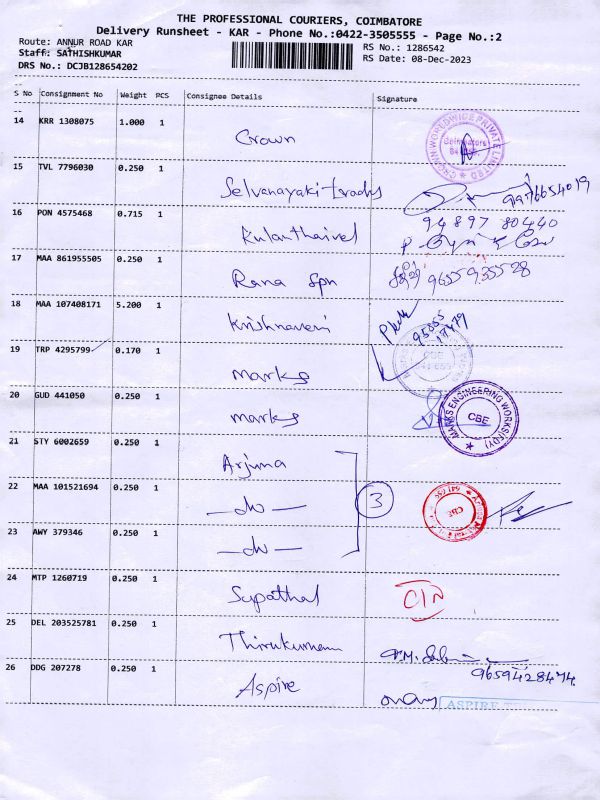 THE PROFESSIONAL COURIERS, COIMBATORE
Delivery Runsheet - KAR - Phone No.:0422-3505555 - Page No.:2
Route: ANNUR ROAD KAR
RS No.: 1286542
Staff: SATHISHKUMAR
RS Date: 08-Dec-2023
DRS No.: DCJB128654202
S No Consignment No Weight PCS Consignee Details Signature
14 KRR 1308075 1.000 1
Crown
CROWN WORLDWIDE PRIVATE LIMITED
15 TVL 7796030 0.250 1
Selvanayaki
16 PON 4575468 0.715 1
94897 80440
Kulanthaivel
17 MAA 861955505 0.250 1
9655935528
Rana Spn
18 MAA 107408171 5.200 1
Krishnaveni
95855
18479
19 TRP 4295799 0.170 1
CBE
marks
20 GUD 441050 0.250 1
marks
MARKS ENGINEERING WORKS
CBE
21 STY 6002659 0.250 1
Arjuna
22 MAA 101521694 0.250 1
— do —
3
CBE
23 AWY 379346 0.250 1
— do —
24 MTP 1260719 0.250 1
25 DEL 203525781 0.250 1
26 DDG 207278 0.250 1
9659428474
Aspire
ASPIRE